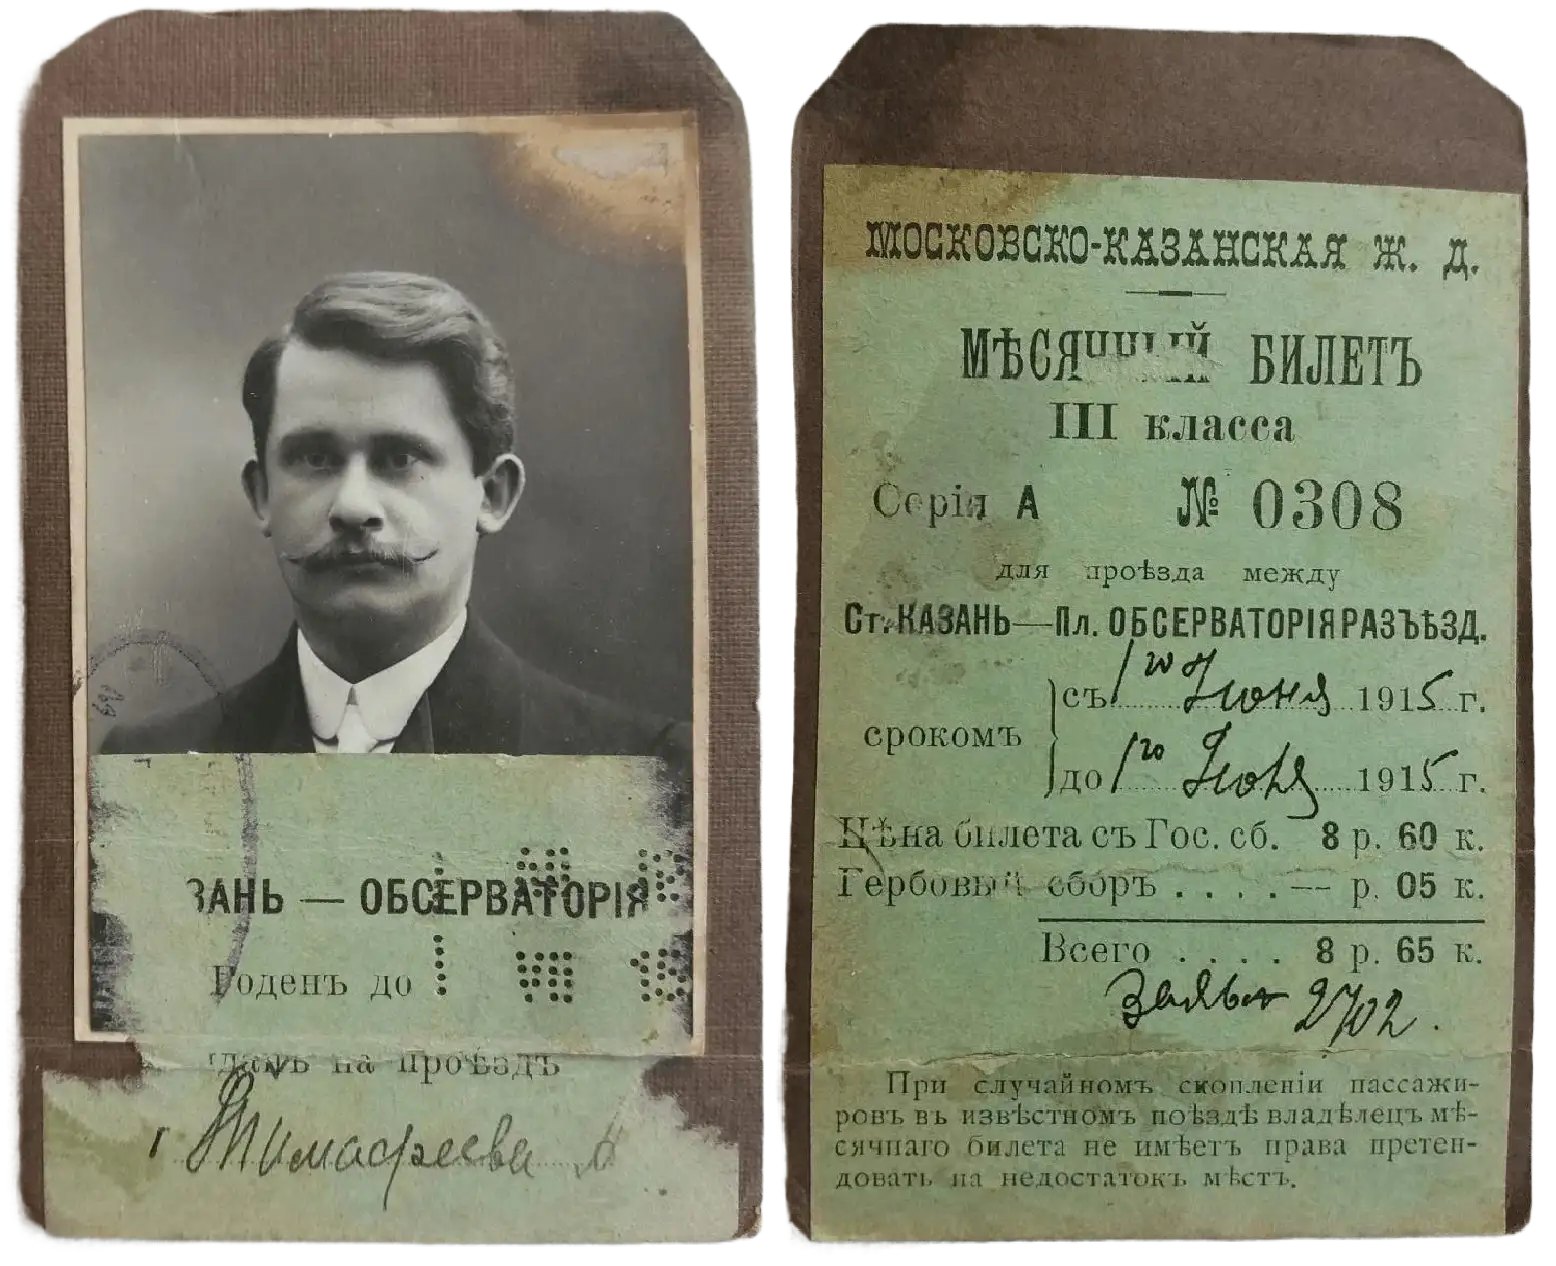 ЗАНЬ — ОБСЕРВАТОРІЯ
Годенъ до 1 VII 15
на проѣздъ
г Тимафеева
МОСКОВСКО-КАЗАНСКАЯ Ж. Д.
МѢСЯЧНЫЙ БИЛЕТЪ
III класса
Серія А № 0308
для проѣзда между
Ст. КАЗАНЬ—Пл. ОБСЕРВАТОРІЯ РАЗЪѢЗД.
срокомъ
съ 1го Июня 1915 г.
до 1го Июля 1915 г.
Цѣна билета съ Гос. сб. 8 р. 60 к.
Гербовый сборъ . . . . — р. 05 к.
Всего . . . . 8 р. 65 к.
2702.
При случайномъ скопленіи пассажи-
ровъ въ извѣстномъ поѣздѣ владѣлецъ мѣ-
сячнаго билета не имѣетъ права претен-
довать на недостатокъ мѣстъ.